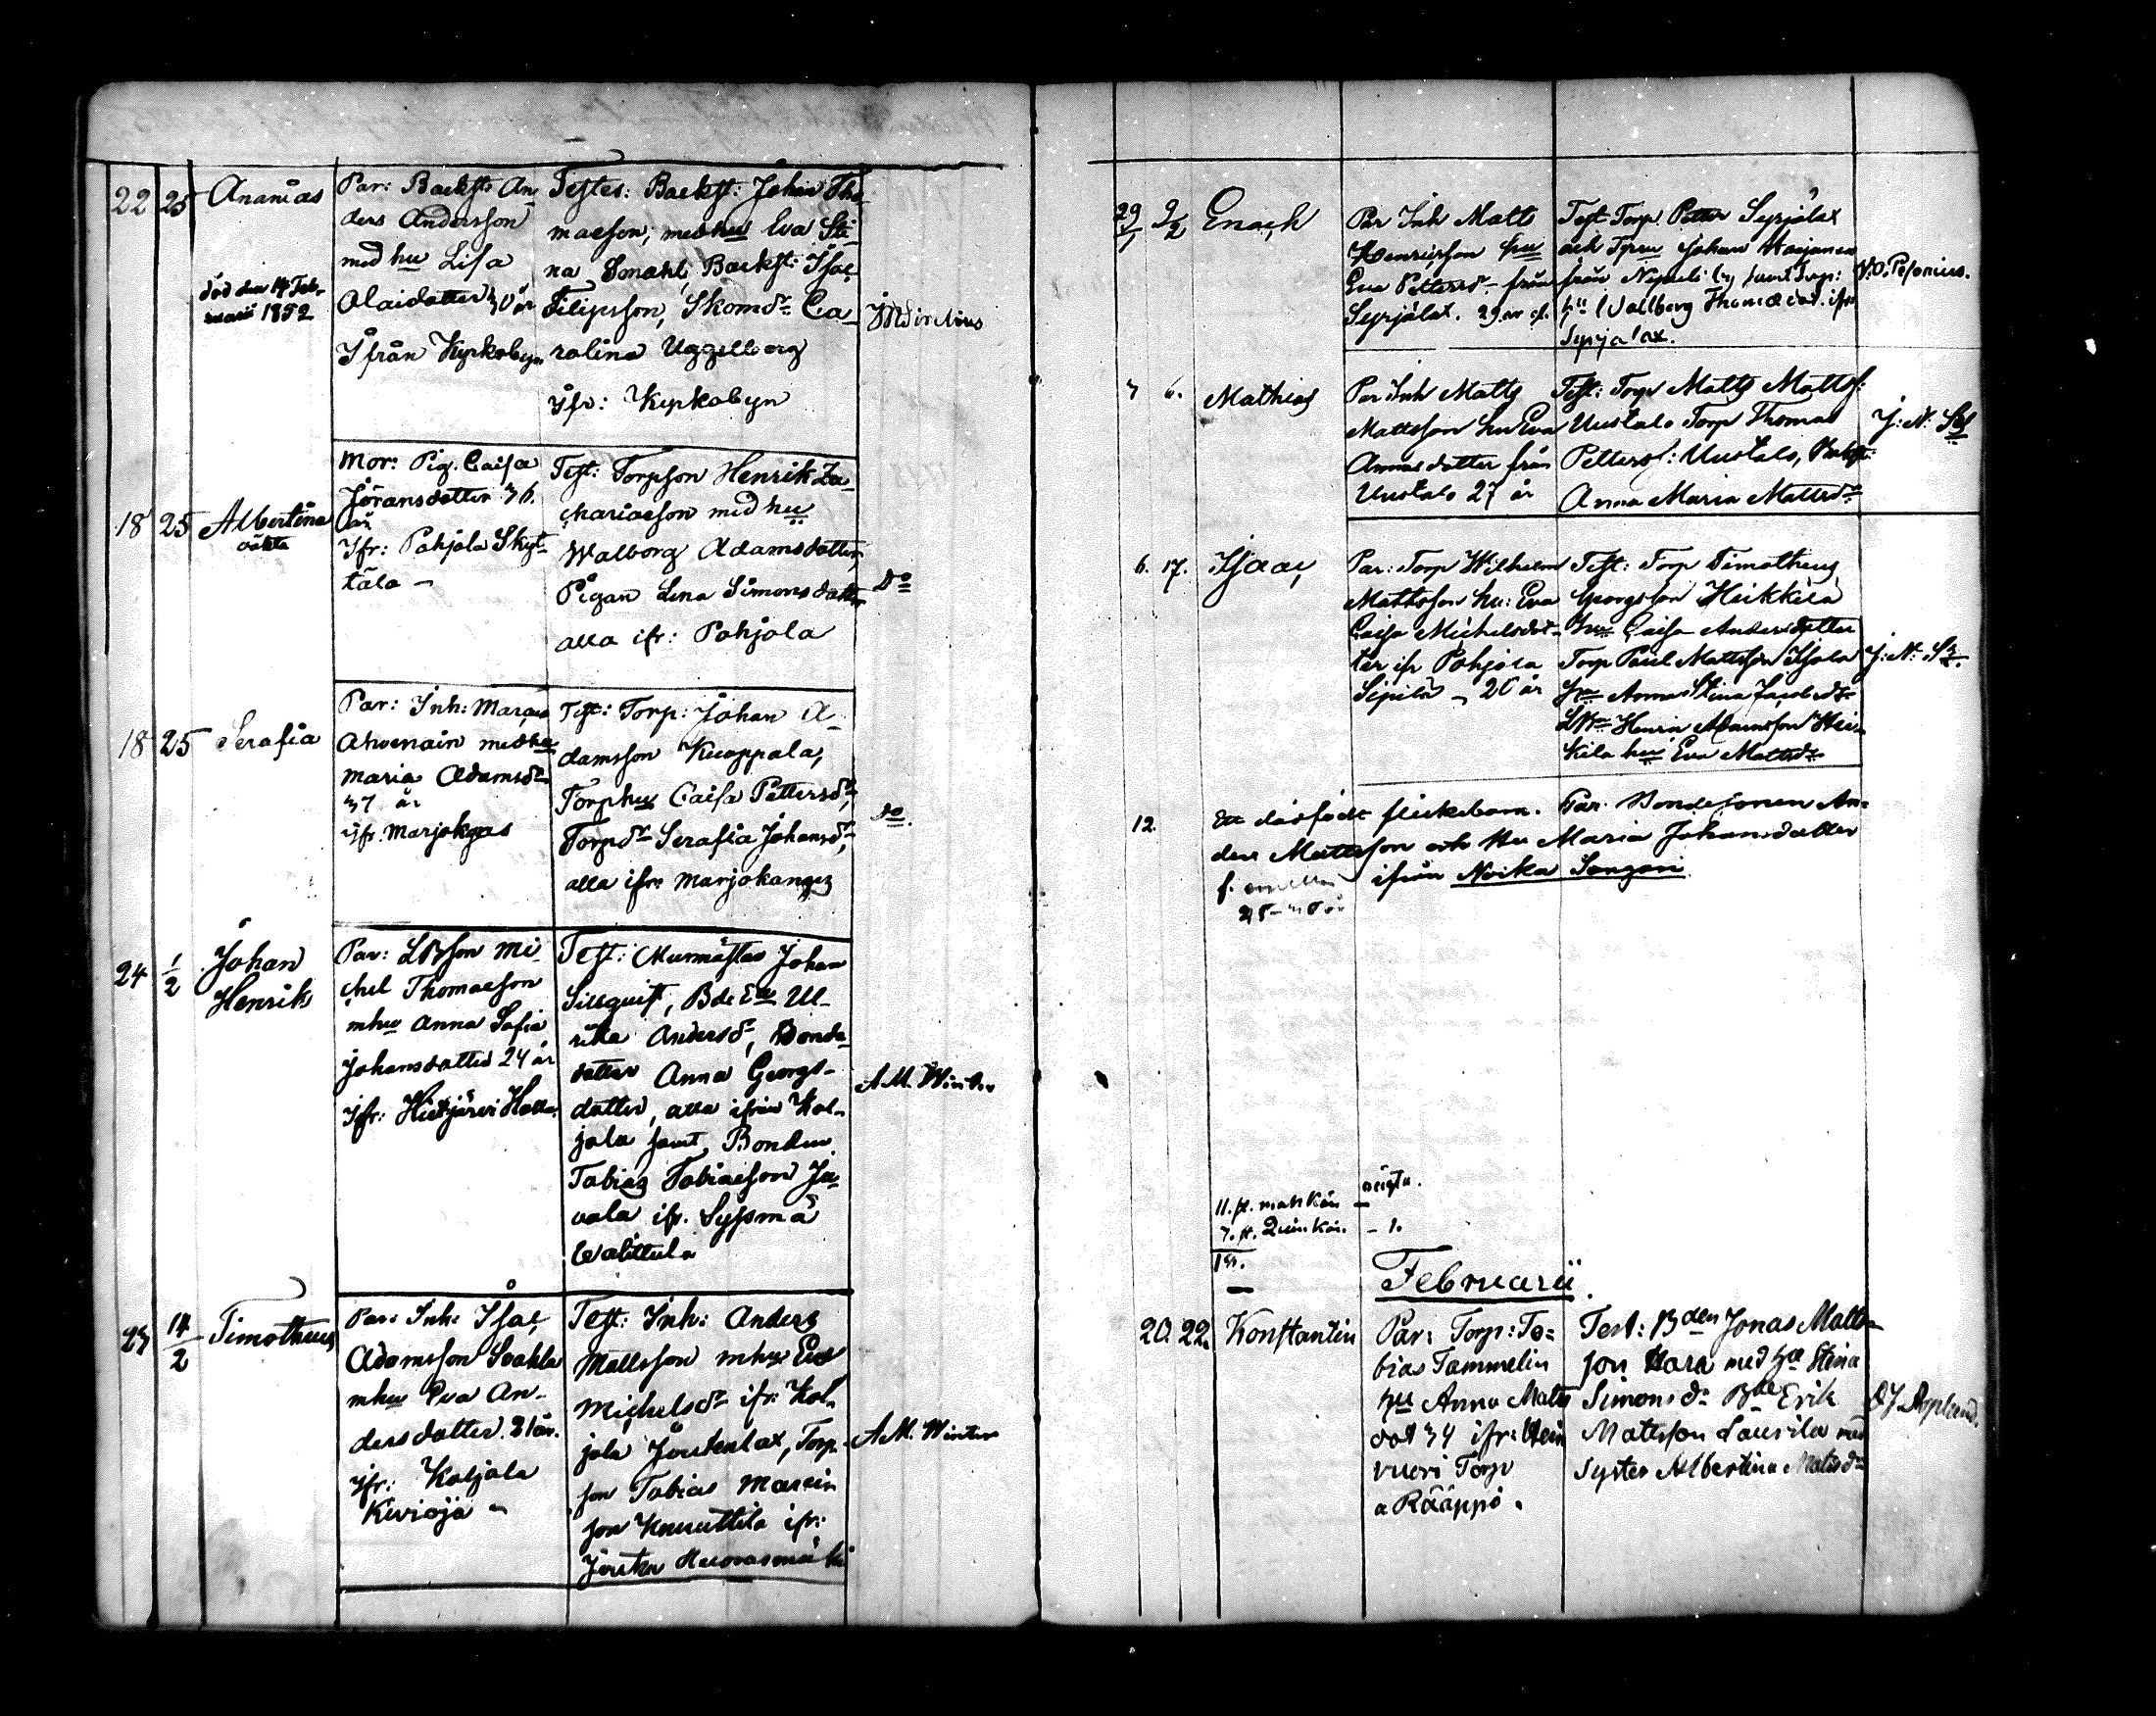 22 25 Ananias
död den 14 Feb-
ruarii 1852
Par: Backst: An-
ders Andersson
med hu Lisa
Olaidotter 30 år
Ifrån Kyrkobyn
Testes: Backst: Johan Tho-
maeson, med hu Eva Sti-
na Smahl, Backst: Isac
Filipsson, Skomdr Ca-
rolina Uggelberg
ifr: Kyrkobyn
18 25 Albertina
oäkta
Mor: Pig. Caisa
Jöransdotter 36
år
Ifr: Pohjola Skyt-
tälä –
Test: Torpson Henrik Za-
chariaeson med hu
Walborg Adamsdotter,
Pigan Lena Simonsdotter
alla ifr: Pohjola
Do
18 25 Serafia
Par: Inh: Marcus
Ahvenain med hu
Maria Adamsdr
37 år
ifr. Marjokgas
Test: Torp: Johan A-
damsson Kuoppala,
Torphu Caisa Pettersdr,
Torpdr Serafia Johansdr,
alla ifr: Marjokangas
Do.
24 1/2 Johan
Henrik
Par: LBson Mi-
chel Thomaeson
mhu Anna Sofia
Johansdotter 24 år
Ifr:
Test: Murmästar Johan
Sillquist, Bde Eu Ul-
rika Andersdr, Bonde-
dotter Anna Georgs-
dotter, alla ifrån Kol-
jola samt Bonden
Tobias Tobiaeson Ju-
vala ifr. Syssmä
A.M. Winter
23 14/2 Timotheus
Par: Inh: Isac
Adamsson
mhu Eva An-
dersdotter 21 år.
ifr: Koljola
Kivioja –
Test: Inh: Anders
Mattsson mhu Eva
Michelsdr ifr: Kol-
jola Joutenlax, Torp-
son Tobias Marcin
son Knuuttila ifr:
Joutsa
A.M. Winter
29/1 9/2 Enoch
Par Inh Matts
Henricsson hu
Eva Pettersdr från
Syrjälax. 29 år
Test Torp Petter Syrjälax
och Johan
från by samt Torp:
hu Vallborg Thomædot. ifr
Syrjälax.
7 6. Mathias
Par Inh Matts
Mattsson hu Eva
Annasdotter från
Uustalo 27 år
Test: Torp Matts Matts:
Uustalo Torp Thomas
Petters: Uustalo,
Anna Maria Mattsdr
J: N:
6. 17. Isaac
Par: Torp Wilhelm
Mattsson hu: Eva
Caisa Michelsdot-
ter ifr Pohjola
Sipilä – 20 år
Test: Torp Timotheus
Georgsson Heikkilä
hu Caisa Andersdotter
Torp Paul Mattsson
hu Anna Stina Jacobsdr
Henric Adamsson Hei-
kilä hu Eva Mattsdr
J: N:
12. Ett dödfödt flickebarn. Par. Bondesonen An-
ders Mattsson och Hu Maria Johansdotter
ifrån Noika
25–30 år
11. st. mank oägta.
7. st. Quink – 1.
18.
Februarii.
20. 22. Konstantin
Par: Torp: To-
bias Tammelin
hu Anna Matts
dot 34 ifr: Hein
vueri Torp
a Rääppö.
Test: Bden Jonas Matts-
son med hu Stina
Simonsdr Bde Erik
Mattsson Laurila med
Syster Albertina Mattsdr